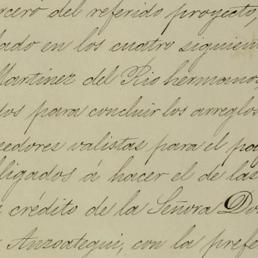 rcero del referido proyecto,
dado en los cuatro siguien
Martinez del Rio hermanos,
dos para concluir los arreglos
eedores valistas para el pag
bligados á hacer el de las
crédito de la Señora Do
Anzoategui, con la prefe